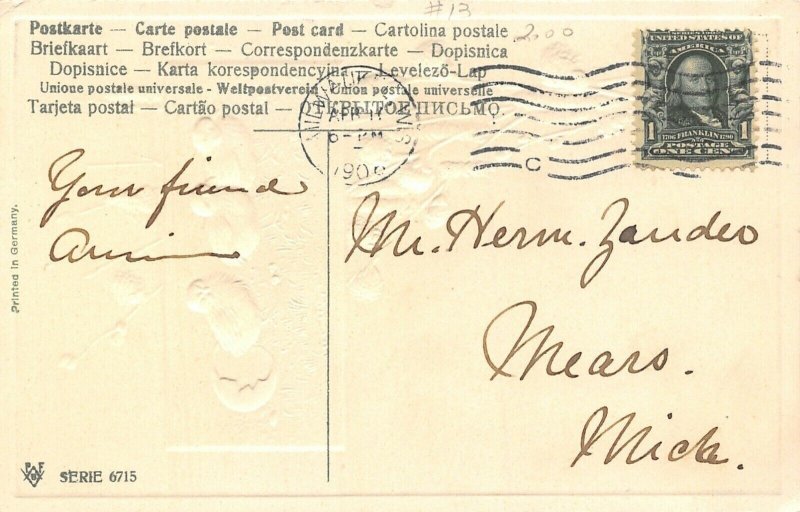 #13
2.00
Postkarte — Carte postale — Post card — Cartolina postale
Briefkaart — Brefkort — Correspondenzkarte — Dopisnica
Dopisnice — Karta korespondencyjna — Levelező-Lap
Unione postale universale - Weltpostverein - Union postale universelle
Tarjeta postal — Cartão postal — ОТКРЫТОЕ ПИСЬМО.
MILWAUKEE, WIS.
APR 11
6-PM
C
SERIES 1902
UNITED STATES OF
AMERICA
1 1
1706 FRANKLIN 1790
POSTAGE
ONE CENT
Your friend
Annie
Mr. Herm. Zander
Mears.
Mich.
Printed in Germany.
P F B
SERIE 6715